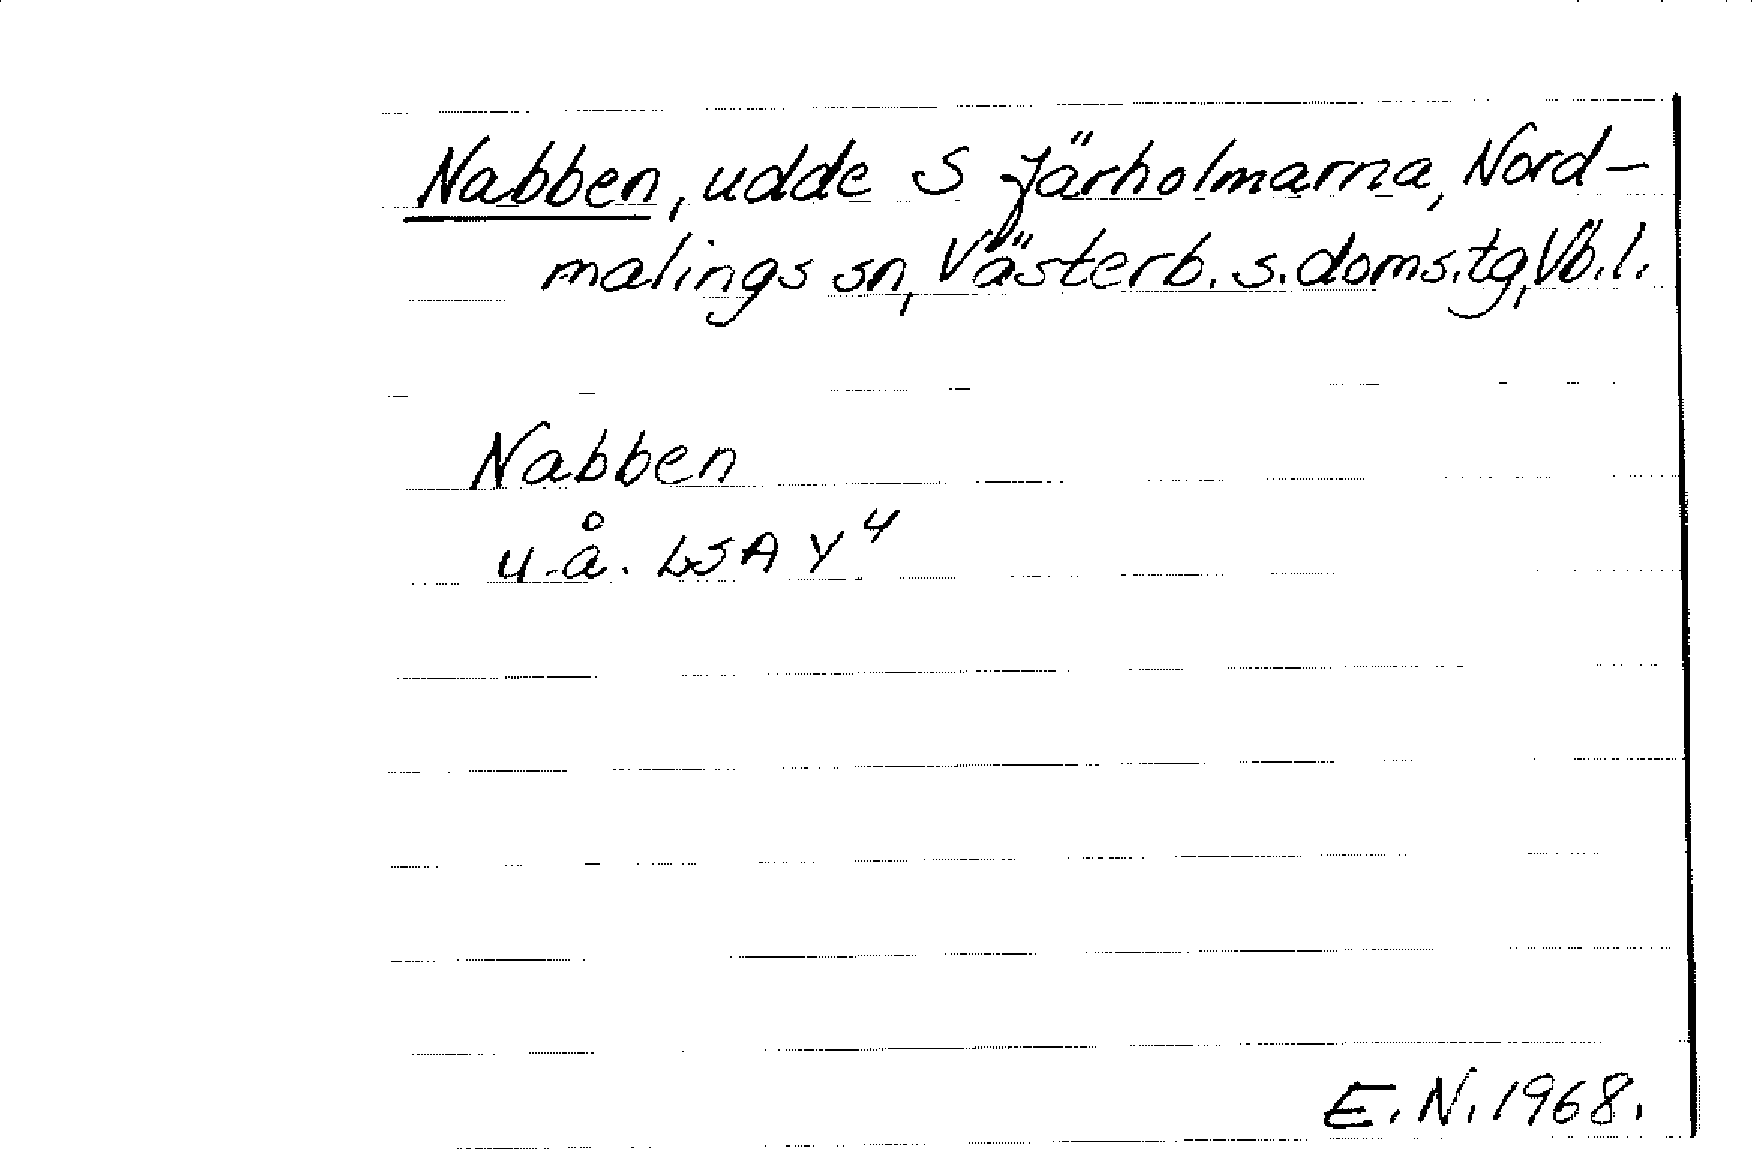 Nabben, udde S Järholmarna, Nord-
malings sn, Västerb. s. doms.tg, Vb. l.
Nabben
u.å. LSA Y⁴
E. N. 1968.